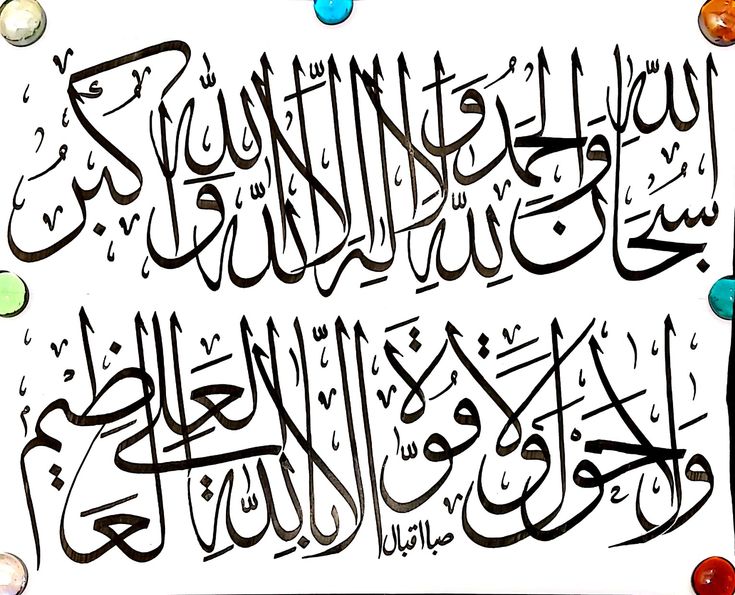 سُبْحَانَ اللّٰهِ وَالْحَمْدُ لِلّٰهِ وَلَا اِلٰهَ اِلَّا اللّٰهُ وَاللّٰهُ اَكْبَرُ
وَلَا حَوْلَ وَلَا قُوَّةَ اِلَّا بِاللّٰهِ الْعَلِیِّ الْعَظِیْمِ
صبا اقبال